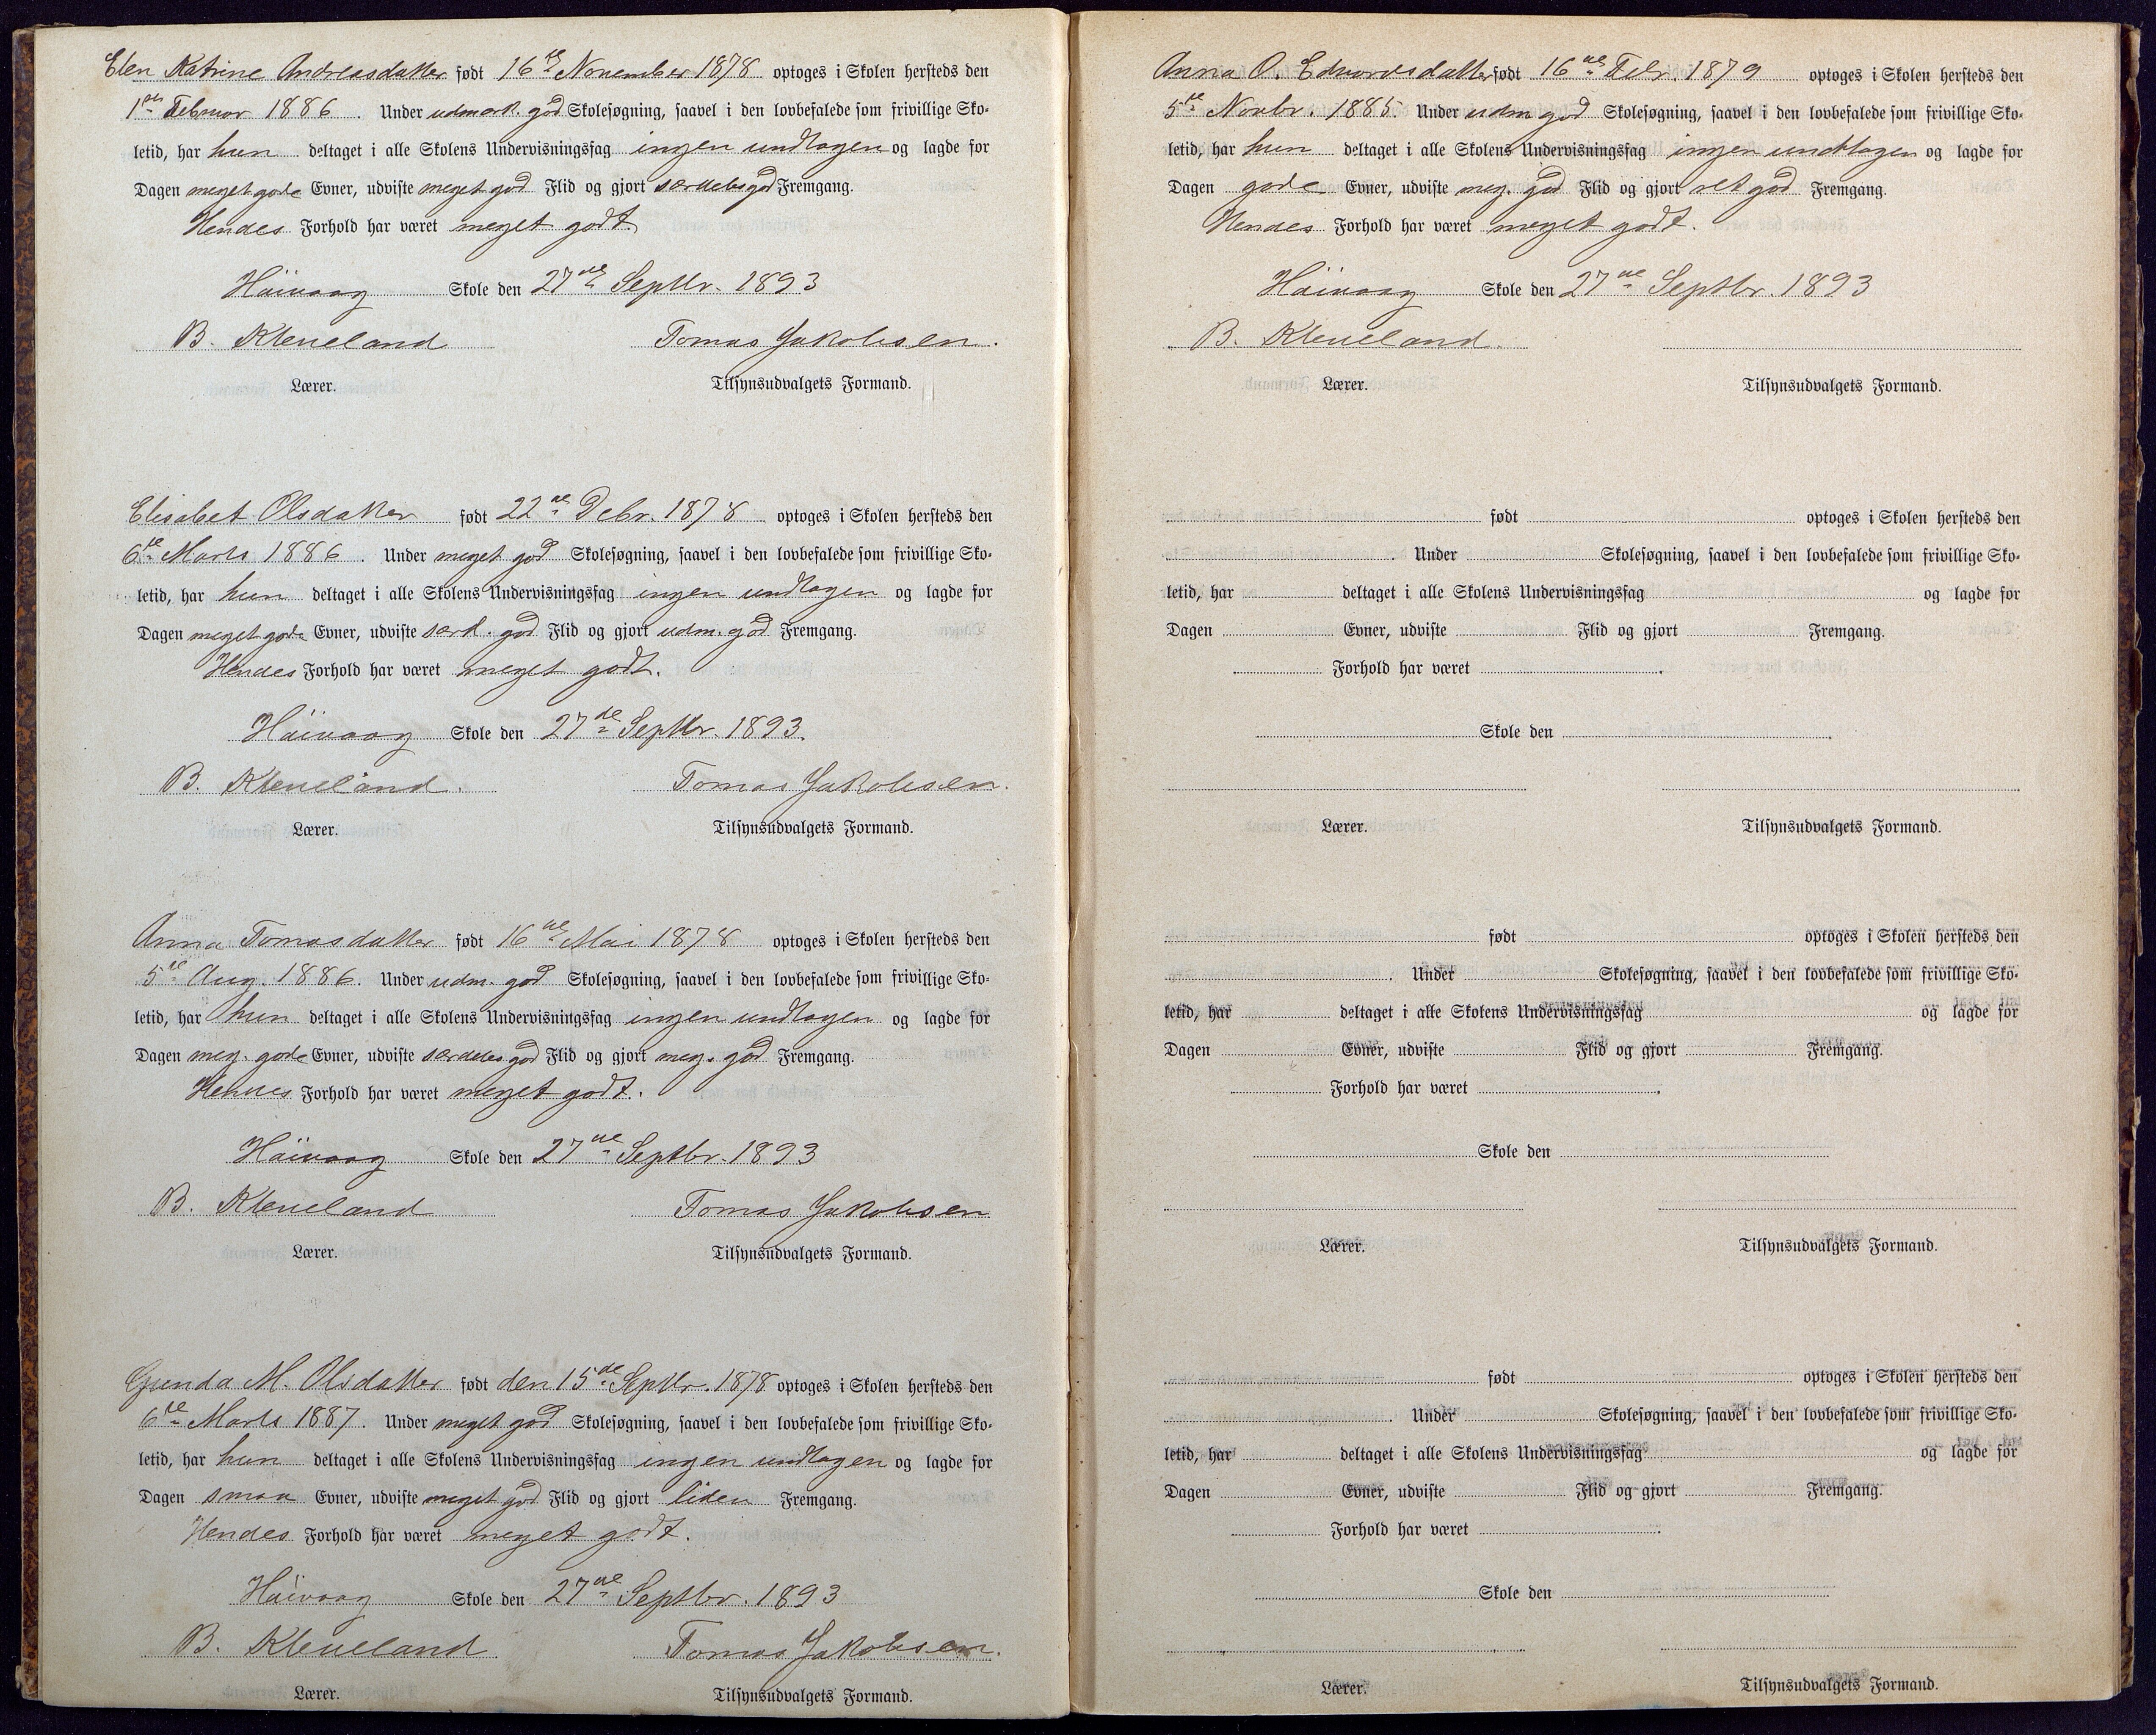 Elen Katrine Andreasdatter født 16de November 1878 optoges i Skolen hersteds den
1ste Februar 1886. Under udmærk. god Skolesøgning, saavel i den lovbefalede som frivillige Sko-
letid, har hun deltaget i alle Skolens Undervisningsfag ingen undtagen og lagde for
Dagen meget gode Evner, udviste meget god Flid og gjort særdeles god Fremgang.
Hendes Forhold har været meget godt.
Häivaag Skole den 27de Septbr. 1893
B. Kleveland Tomas Jakobsen.
Lærer. Tilsynsudvalgets Formand.
Elisabet Olsdatter født 22de Debr. 1878 optoges i Skolen hersteds den
6te Marts 1886. Under meget god Skolesøgning, saavel i den lovbefalede som frivillige Sko-
letid, har hun deltaget i alle Skolens Undervisningsfag ingen undtagen og lagde for
Dagen meget gode Evner, udviste særd. god Flid og gjort udm. god Fremgang.
Hendes Forhold har været meget godt.
Häivaag Skole den 27de Septbr. 1893.
B. Kleveland. Tomas Jakobsen.
Lærer. Tilsynsudvalgets Formand.
Anna Tomasdatter født 16de Mai 1878 optoges i Skolen hersteds den
5te Aug. 1886. Under udm. god Skolesøgning, saavel i den lovbefalede som frivillige Sko-
letid, har hun deltaget i alle Skolens Undervisningsfag ingen undtagen og lagde for
Dagen meg. gode Evner, udviste særdeles god Flid og gjort meg. god Fremgang.
Hendes Forhold har været meget godt.
Häivaag Skole den 27de Septbr. 1893
B. Kleveland Tomas Jakobsen
Lærer. Tilsynsudvalgets Formand.
Gunda M. Olsdatter født den 15de Septbr. 1878 optoges i Skolen hersteds den
6te Marts 1887. Under meget god Skolesøgning, saavel i den lovbefalede som frivillige Sko-
letid, har hun deltaget i alle Skolens Undervisningsfag ingen undtagen og lagde for
Dagen smaa Evner, udviste meget god Flid og gjort liden Fremgang.
Hendes Forhold har været meget godt.
Häivaag Skole den 27de Septbr. 1893
B. Kleveland Tomas Jakobsen.
Lærer. Tilsynsudvalgets Formand.
Anna O. Edvardsdatter født 16de Febr. 1879 optoges i Skolen hersteds den
5te Novbr. 1885. Under udm god Skolesøgning, saavel i den lovbefalede som frivillige Sko-
letid, har hun deltaget i alle Skolens Undervisningsfag ingen undtagen og lagde for
Dagen gode Evner, udviste meg. god Flid og gjort ret god Fremgang.
Hendes Forhold har været meget godt.
Häivaag Skole den 27de Septbr. 1893
B. Kleveland.
Lærer. Tilsynsudvalgets Formand.
født optoges i Skolen hersteds den
. Under Skolesøgning, saavel i den lovbefalede som frivillige Sko-
letid, har deltaget i alle Skolens Undervisningsfag og lagde for
Dagen Evner, udviste Flid og gjort Fremgang.
Forhold har været .
Skole den .
Lærer. Tilsynsudvalgets Formand.
født optoges i Skolen hersteds den
. Under Skolesøgning, saavel i den lovbefalede som frivillige Sko-
letid, har deltaget i alle Skolens Undervisningsfag og lagde for
Dagen Evner, udviste Flid og gjort Fremgang.
Forhold har været .
Skole den
Lærer. Tilsynsudvalgets Formand.
født optoges i Skolen hersteds den
Under Skolesøgning, saavel i den lovbefalede som frivillige Sko-
letid, har deltaget i alle Skolens Undervisningsfag og lagde for
Dagen Evner, udviste Flid og gjort Fremgang.
Forhold har været .
Skole den
Lærer. Tilsynsudvalgets Formand.